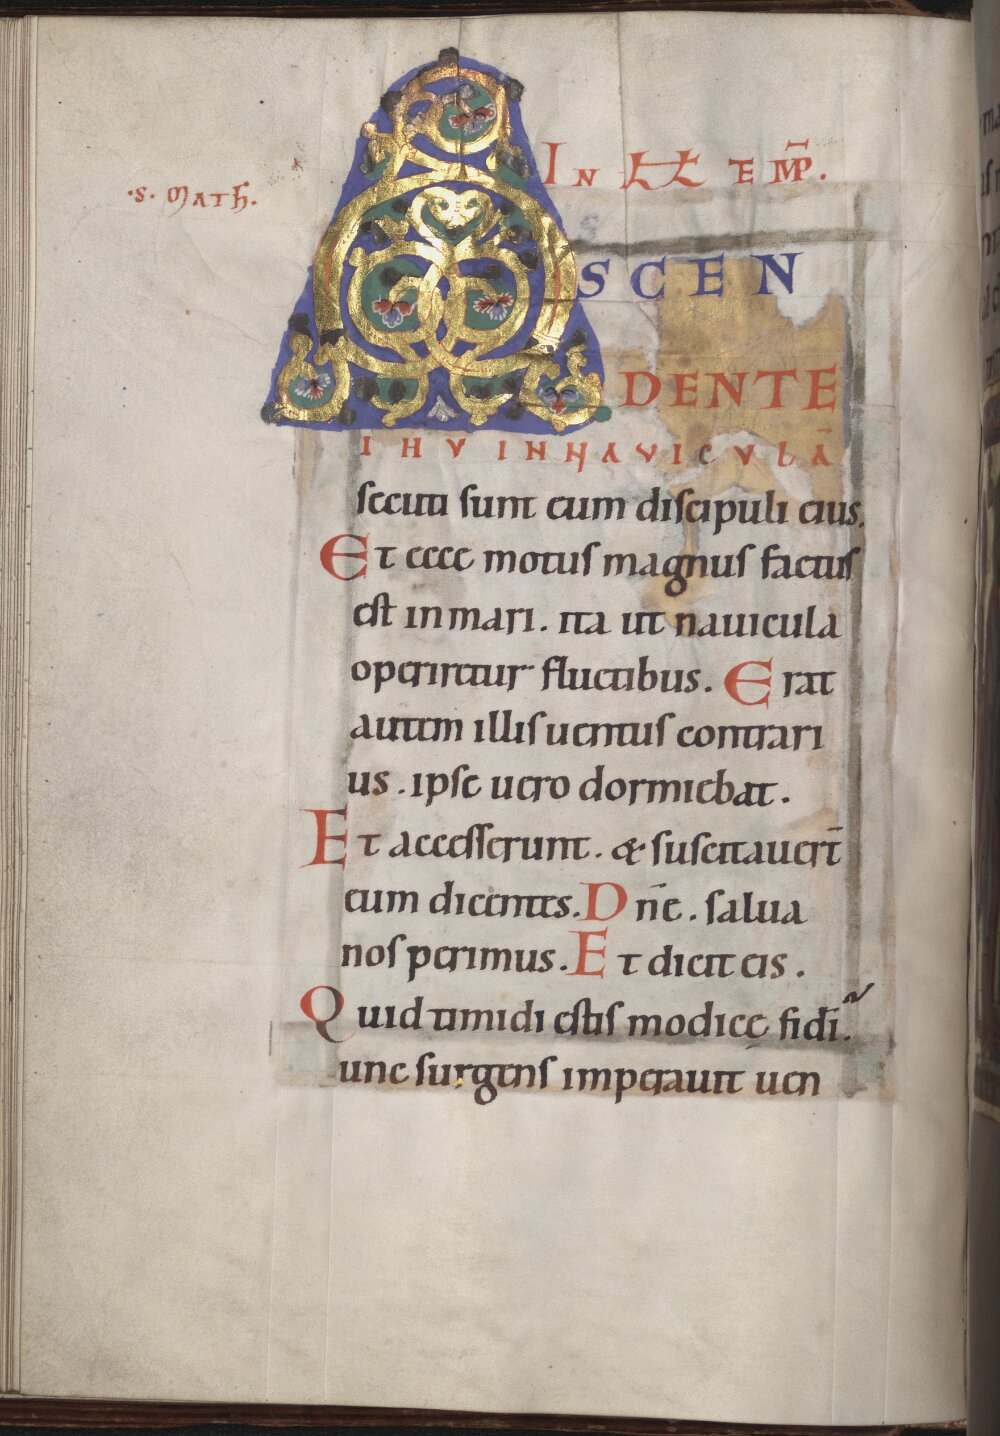 ·S· MATH·
IN ILL TEMP̄.
ASCEN
DENTE
IHV IN NAVICVLĀ
secuti sunt eum discipuli eius.
Et ecce motus magnus factus
est in mari. ita ut nauicula
operiretur fluctibus. Erat
autem illis uentus contrari
us. ipse uero dormiebat.
Et accesserunt. & suscitauer̄t
eum dicentes. Dn̄e. salua
nos perimus. Et dicit eis.
Quid timidi estis modicę fidi.
N
unc surgens imperauit uen